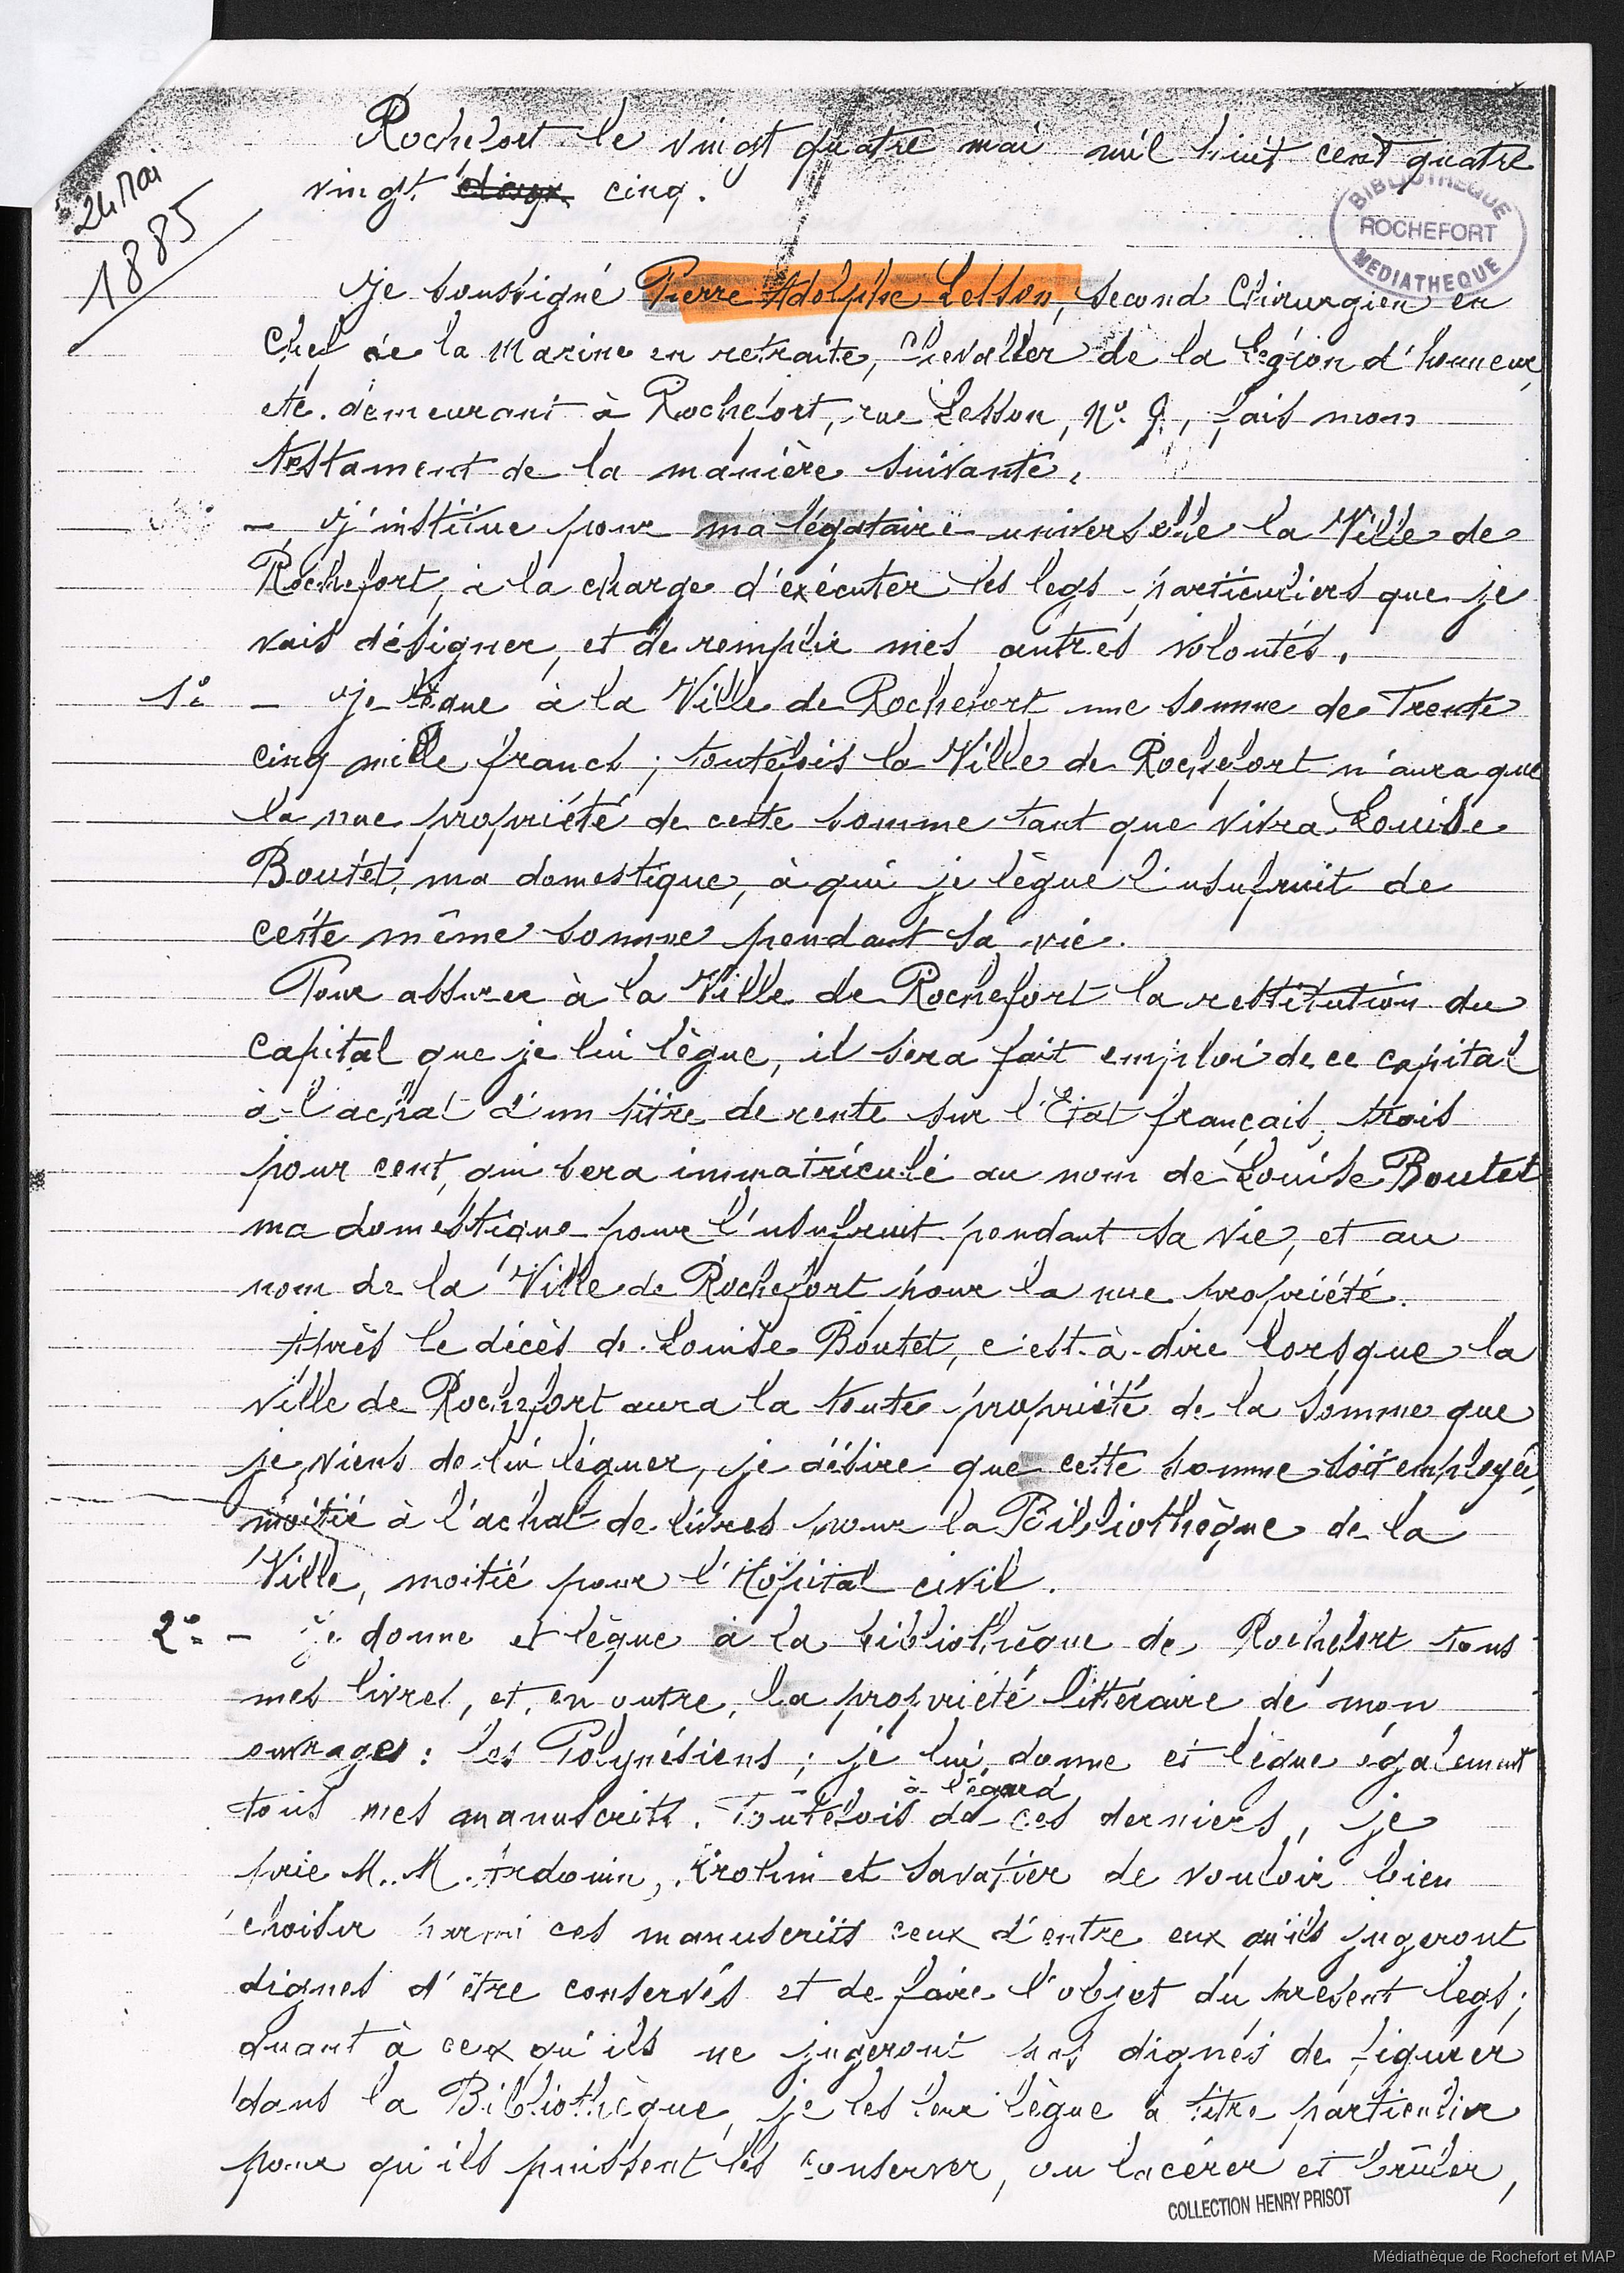 24 Mai
1885
Rochefort le vingt quatre mai mil huit cent quatre
vingt cinq.
BIBLIOTHEQUE
ROCHEFORT
MEDIATHEQUE
Je soussigné Pierre Adolphe Lesson, second Chirurgien en
Chef de la Marine en retraite, Chevalier de la Légion d'honneur,
etc. demeurant à Rochefort, rue Lesson, No. 9, fais mon
testament de la manière suivante.
- J'institue pour ma légataire universelle la Ville de
Rochefort, à la charge d'exécuter les legs particuliers que je
vais désigner, et de remplir mes autres volontés.
1o - Je lègue à la Ville de Rochefort une somme de Trente
cinq mille francs ; toutefois la Ville de Rochefort n'aura que
la nue propriété de cette somme tant que vivra Louise
Boutet, ma domestique, à qui je lègue l'usufruit de
cette même somme pendant sa vie.
Pour assurer à la Ville de Rochefort la restitution du
capital que je lui lègue, il sera fait emploi de ce capital
à l'achat d'un titre de rente sur l'Etat français, trois
pour cent, qui sera immatriculé au nom de Louise Boutet
ma domestique pour l'usufruit pendant sa vie, et au
nom de la Ville de Rochefort pour la nue propriété.
Après le décès de Louise Boutet, c'est-à-dire lorsque la
ville de Rochefort aura la toute propriété de la somme que
je viens de lui léguer, je désire que cette somme soit employée,
moitié à l'achat de livres pour la Bibliothèque de la
Ville, moitié pour l'Hôpital civil.
2o - Je donne et lègue à la bibliothèque de Rochefort tous
mes livres, et, en outre, la propriété littéraire de mon
ouvrage : les Polynésiens ; je lui donne et lègue également
tous mes manuscrits. Toutefois à l'égard de ces derniers, je
prie M. M. Ardouin, et Savatier de vouloir bien
choisir parmi ces manuscrits ceux d'entre eux qu'ils jugeront
dignes d'être conservés et de faire l'objet du présent legs ;
quant à ceux qu'ils ne jugeront pas dignes de figurer
dans la Bibliothèque, je les leur lègue à titre particulier
pour qu'ils puissent les conserver, ou lacérer et brûler,
COLLECTION HENRY PRISOT
Médiathèque de Rochefort et MAP